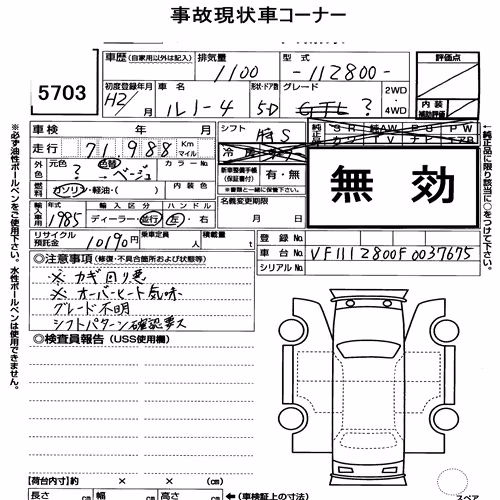 事故現状車コーナー
5703
車歴(自家用以外は記入) 排気量 型式 評価点
1100 -112800-
初度登録年月 車名 形状・ドア数 グレード 2WD・4WD 内装補助評価
H2/月 ルノー4 5D GTL ?
車検 年 月 シフト
走行 71,988 Km マイル
外色 元色 色替 カラーNo.
? → ベージュ
燃料 ガソリン・軽油・( ) 内装色
新車整備手帳(保証書付) 有・無
※書類と一緒に保管下さい。
無効
輸入車用 年式 輸入区分 ハンドル 名義変更期限
1985 ディーラー・並行 左・右 月 日
リサイクル預託金 10190円 乗車定員 人 積載量 t
登録No.
車台No. VF1112800F0037675
シリアルNo.
◎注意事項(修復・不具合箇所および状態等)
※ カギ回り悪
※ オーバーヒート気味
グレード不明
シフトパターン確認要ス
◎検査員報告(USS使用欄)
【荷台内寸】 × ×
長さ cm 幅 cm 高さ cm ←(車検証上の寸法)
スペア
※必ず油性ボールペンをご使用下さい。水性ボールペンは使用できません。
←純正品に限り項目に○をつけて下さい。